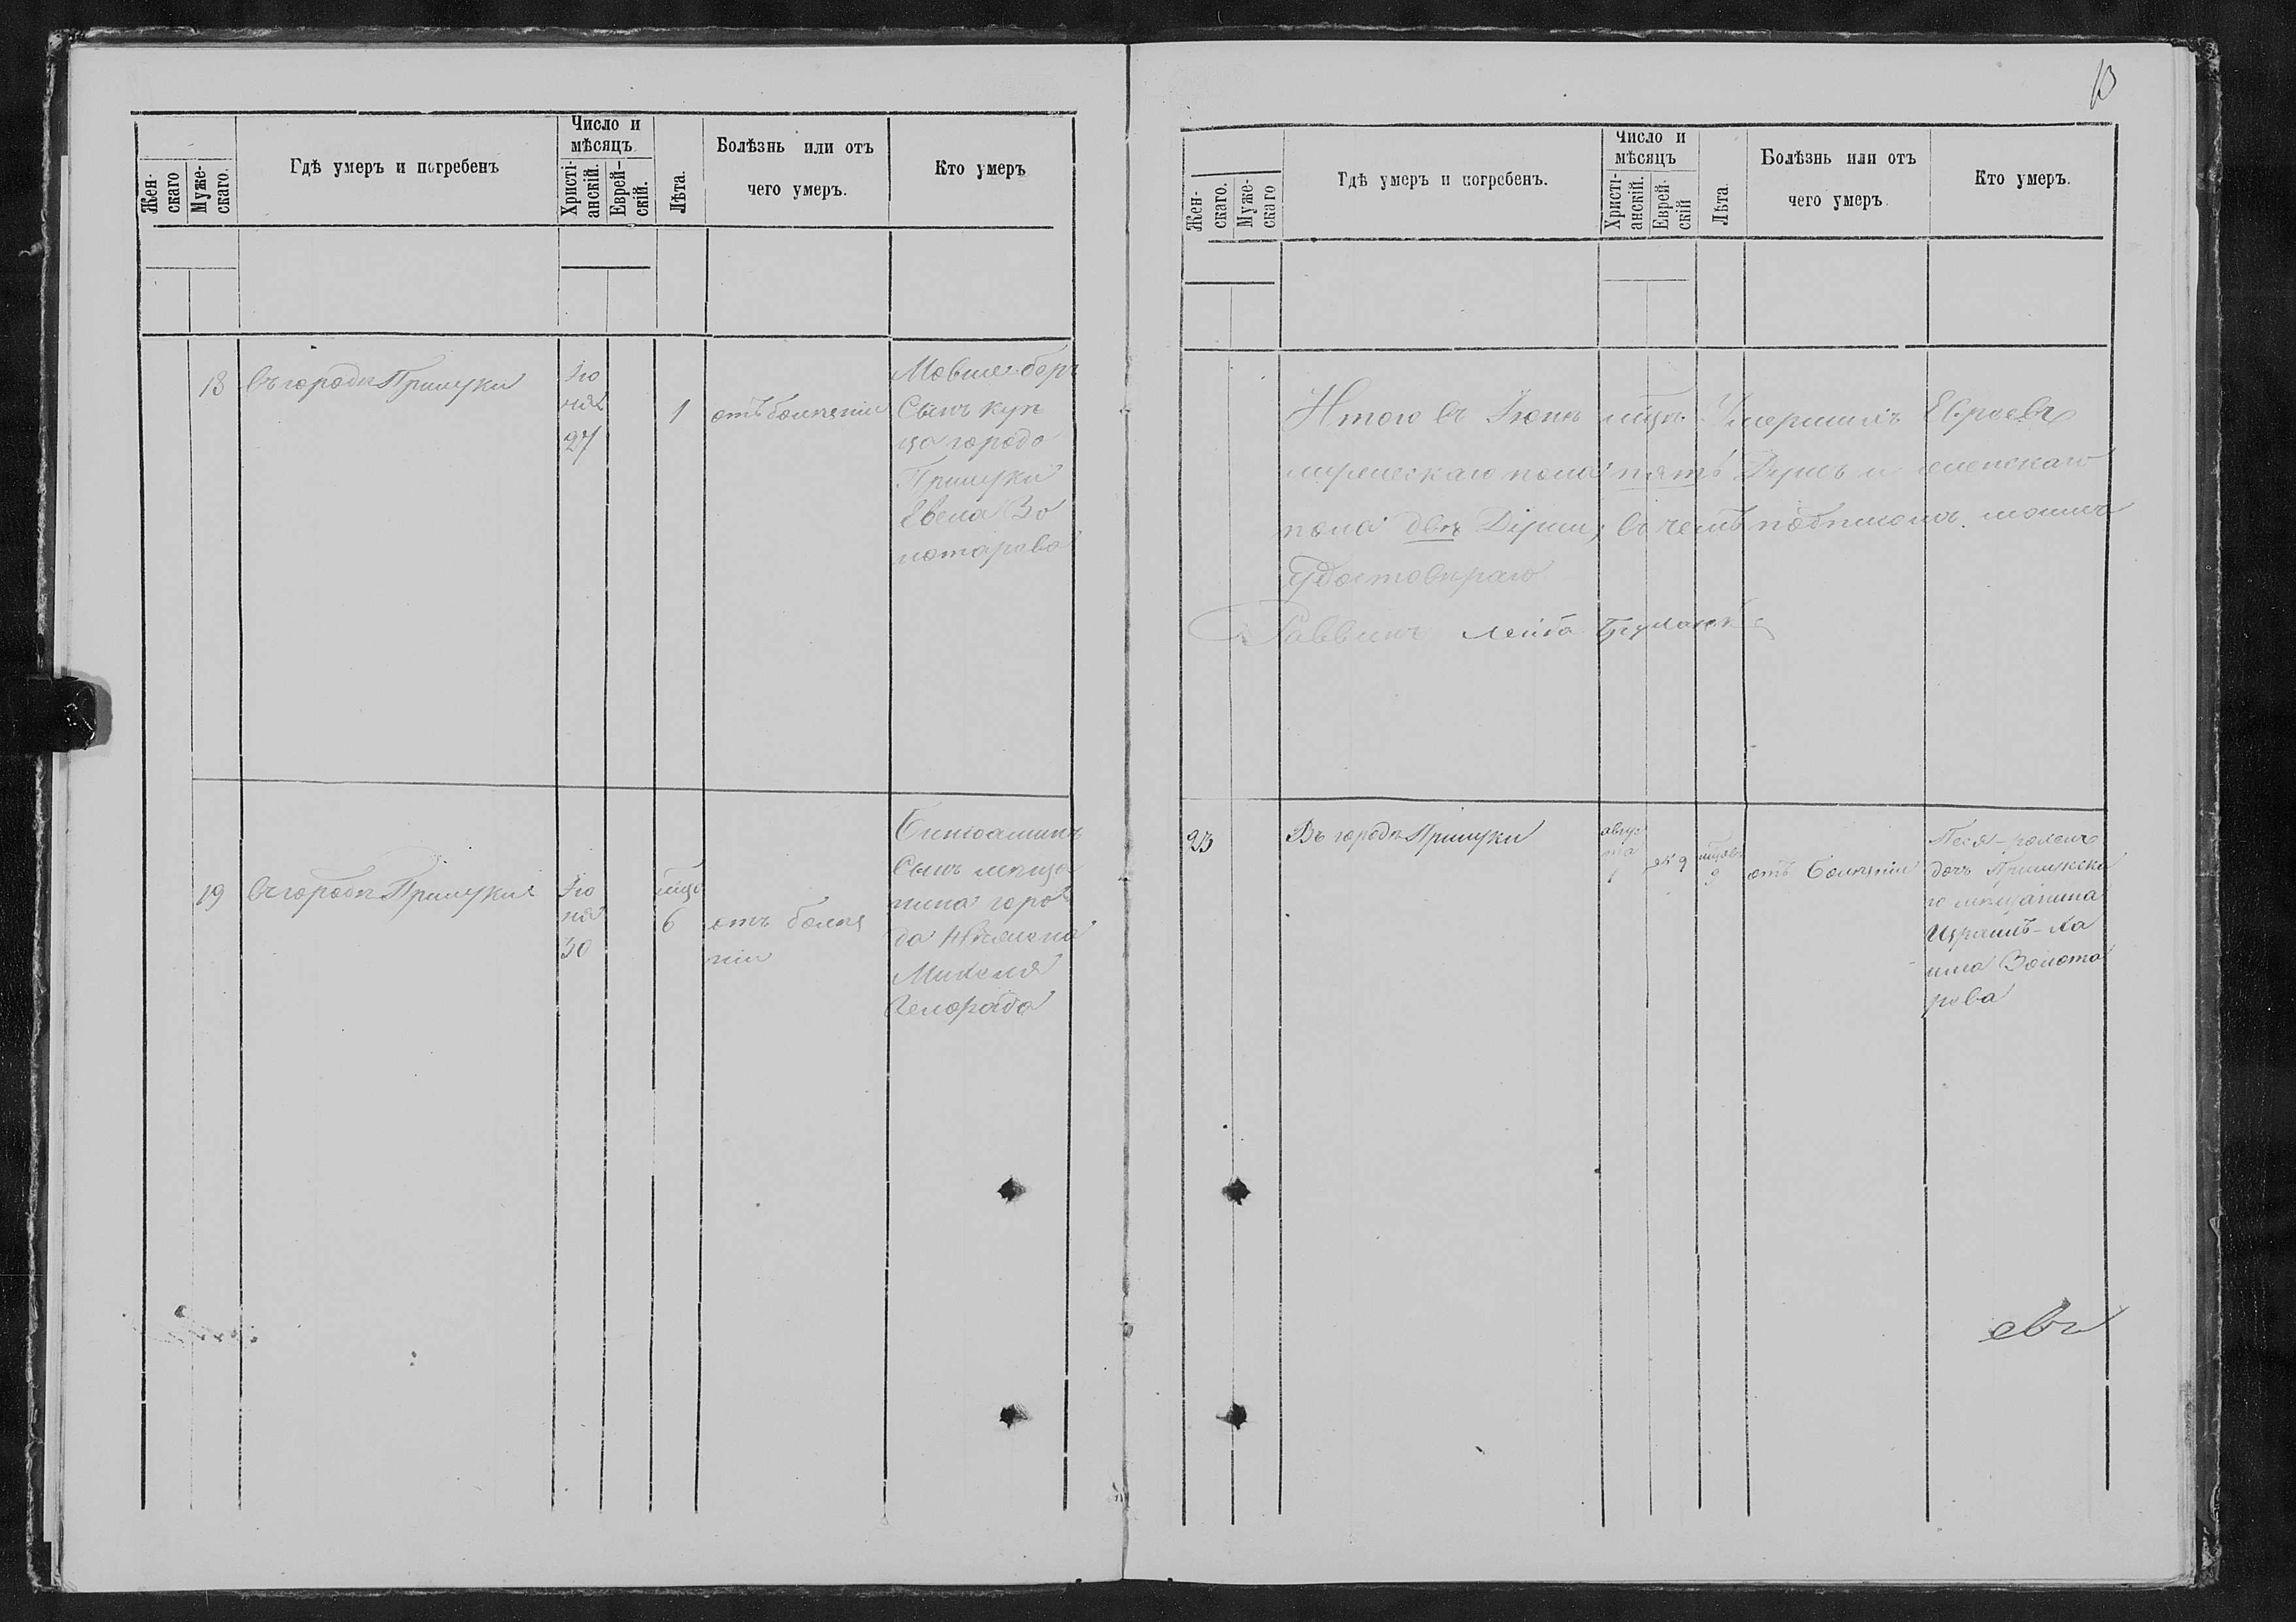 Жен-
скаго
Муже-
скаго.
Гдѣ умеръ и погребенъ
Число и
мѣсяцъ
Христі-
анскій.
Еврей-
скій.
Лѣта.
Болѣзнь или отъ
чего умеръ.
Кто умеръ
18
въ городѣ Прилуки
Ію
ня
27
1
отъ болѣзни
Мовша-беръ
Сынъ куп
ца города
Прилуки
Евела Зо
лотарова
19
въ городѣ Прилуки
Ію
ня
30
мѣц
6
отъ болѣз
ни
Сынъ мѣща
нина горо
да
13
Жен-
скаго.
Муже-
скаго
Гдѣ умеръ и погребенъ.
Число и
мѣсяцъ
Христі-
анскій.
Еврей-
скій
Лѣта.
Болѣзнь или отъ
чего умеръ.
Кто умеръ.
Итого въ Іюнѣ мцѣ Умершихъ Евреевъ
мужескаго пола пять Душъ и женскаго
пола двѣ Души, въ чемъ подписомъ моимъ
Удостовѣраю
Раввинъ Лейба
23
Въ городѣ Прилуки
авгус
та
1
9
9
отъ Болѣзни
дочъ Прилукска
го мѣщанина
Израилъ-Ха
има Золота
рова